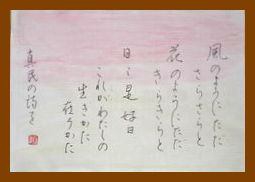 風のようにただ
さらさらと
花のようにただ
きらきらと
日々是好日
これがわたしの
生きかた
在りかた
真民の詩を